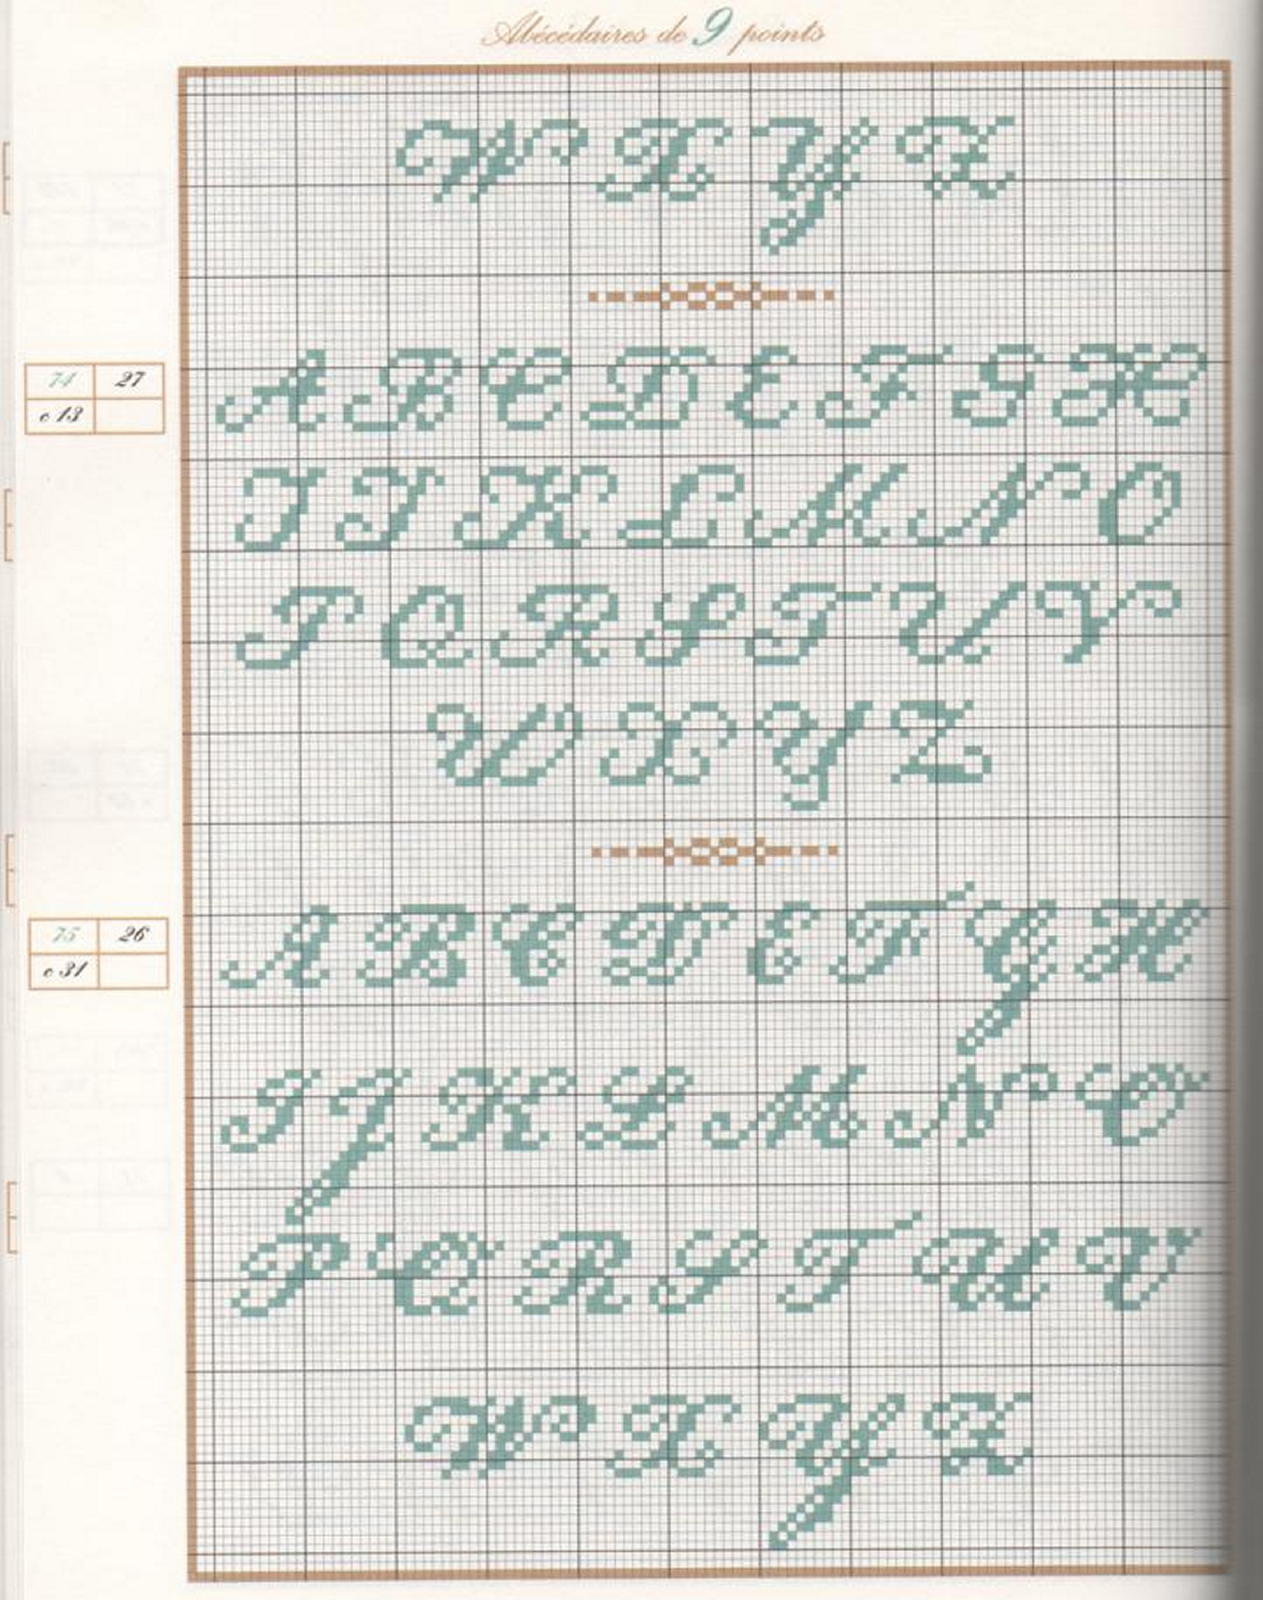 Abécédaires de 9 points
W X Y Z
74 27
c 13
A B C D E F G H
I J K L M N O
P Q R S T U V
W X Y Z
75 26
c 31
A B C D E F G H
I J K L M N O
P Q R S T U V
W X Y Z